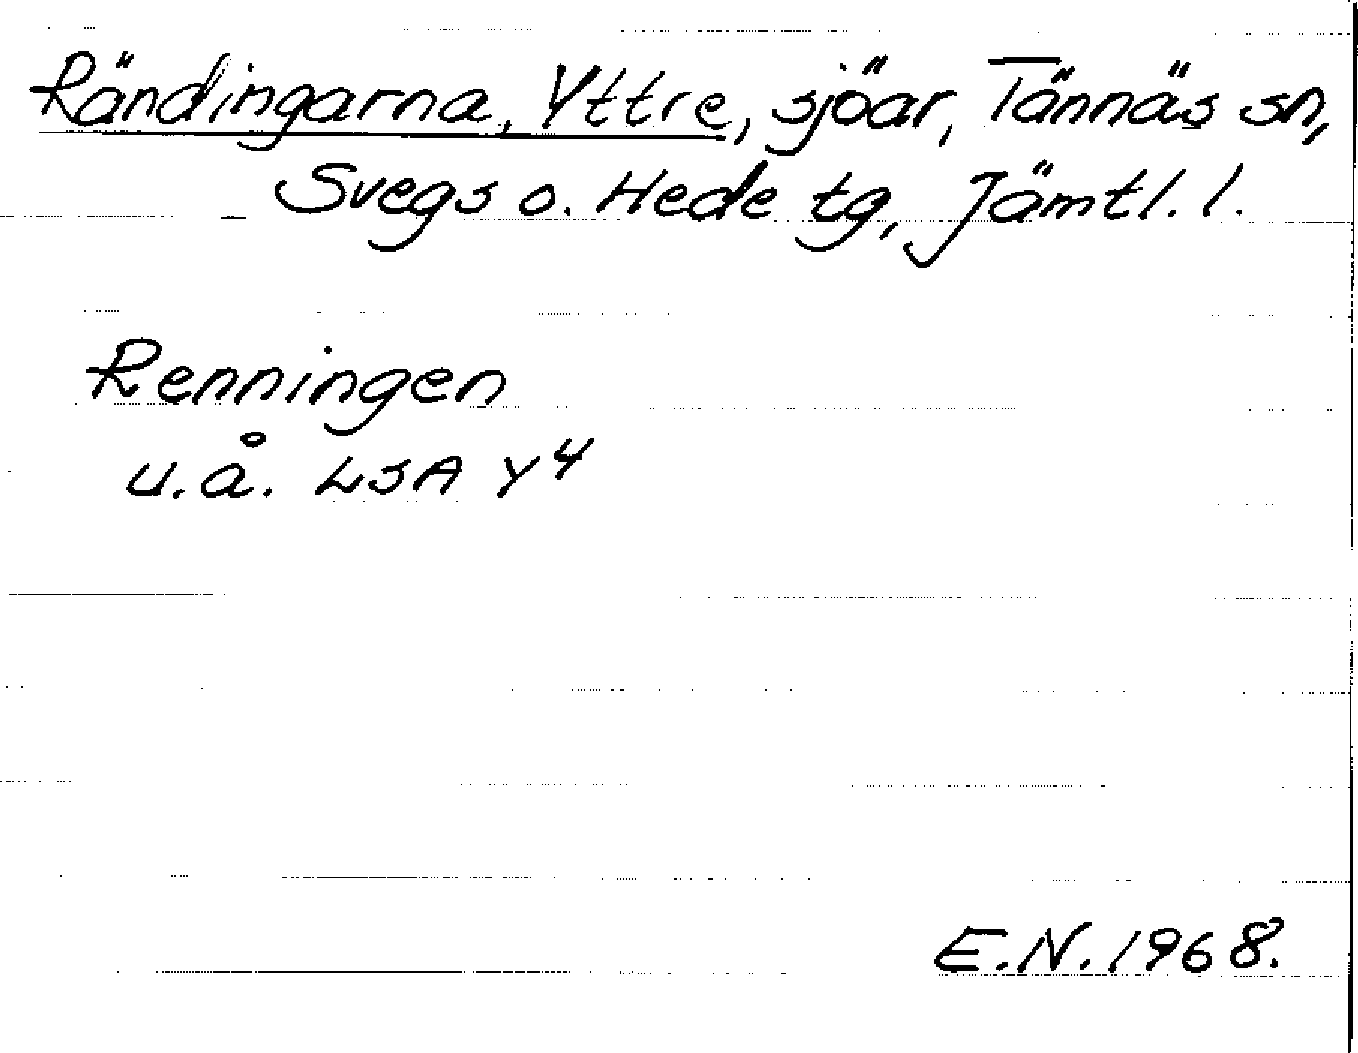 Rändingarna, Yttre, sjöar, Tännäs sn,
Svegs o. Hede tg, Jämtl. l.
Renningen
u.å. LSA Y4
E.N. 1968.